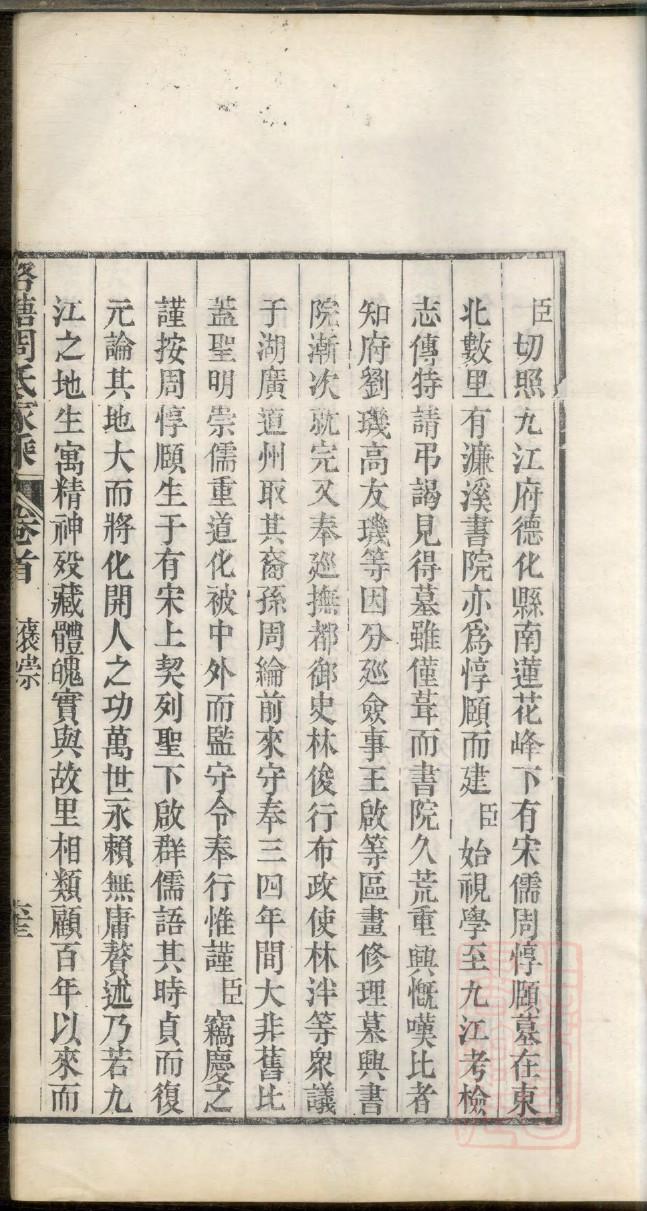 臣切照九江府德化縣南蓮花峰下有宋儒周惇頤墓在東
北數里有濂溪書院亦爲惇頤而建臣始視學至九江考檢
志傳特請弔謁見得墓雖僅葺而書院久荒重興慨嘆比者
知府劉璣高友璣等因分廵僉事王啟等區畫修理墓與書
院漸次就完又奉廵撫都御史林俊行布政使林泮等衆議
于湖廣道州取其裔孫周綸前來守奉三四年間大非舊比
蓋聖明崇儒重道化被中外而監守令奉行惟謹臣竊慶之
謹按周惇頤生于有宋上契列聖下啟群儒語其時貞而復
元論其地大而將化開人之功萬世永賴無庸贅述乃若九
江之地生寓精神歿藏體魄實與故里相類顧百年以來而
周氏家乘 卷首 褒崇